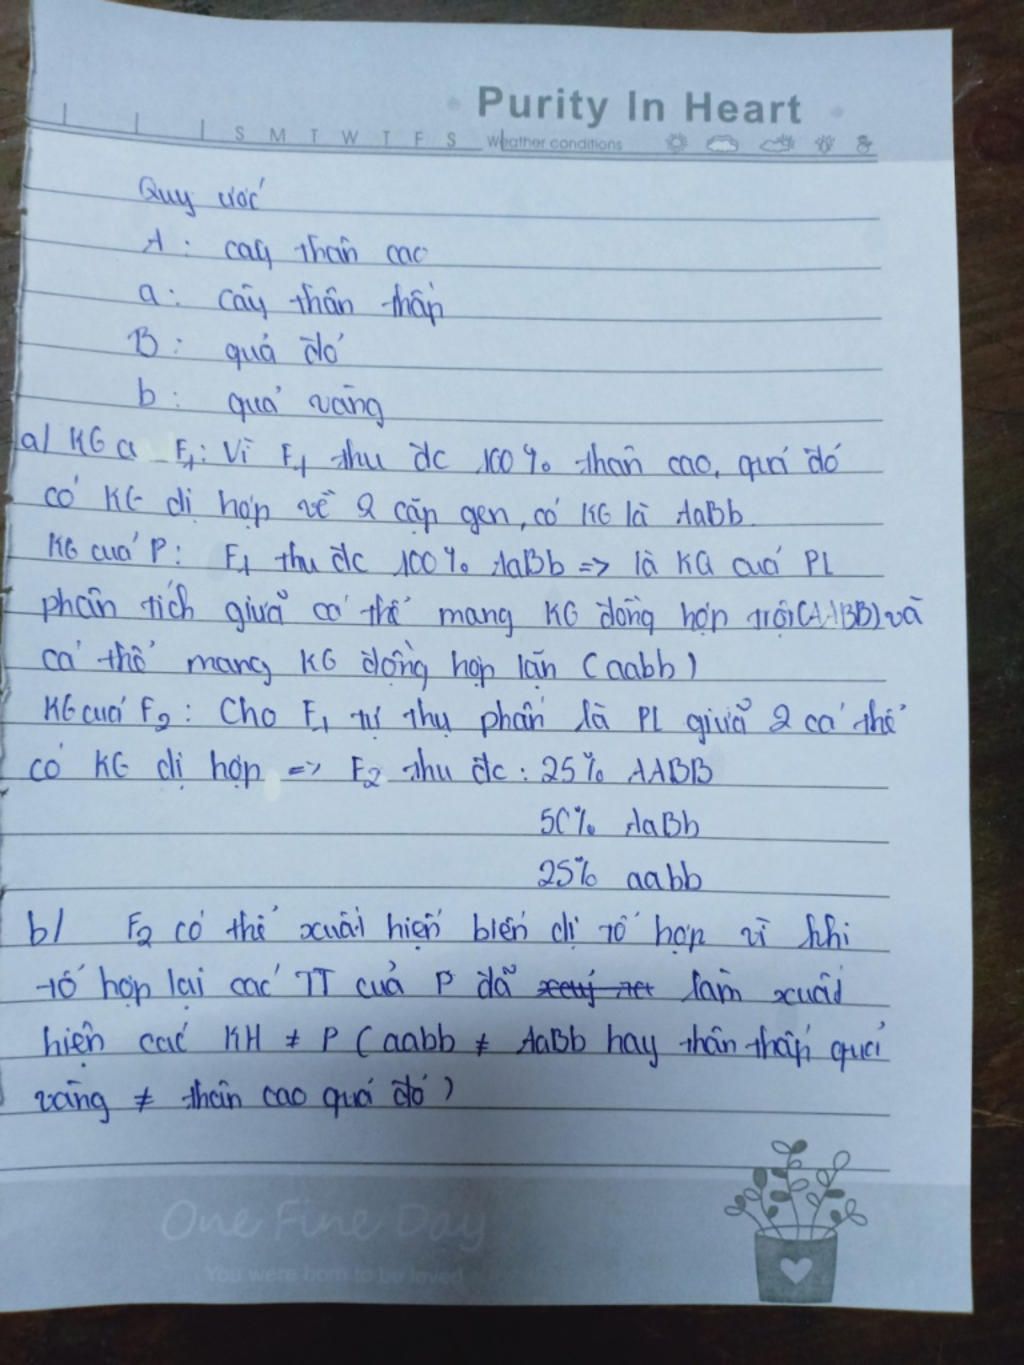 Purity In Heart
S M T W T F S Weather conditions
Quy ước
A: cây thân cao
a: cây thân thấp
B: quả đỏ
b: quả vàng
a/ KG của F1: Vì F1 thu đc 100% thân cao, quả đỏ
có KG dị hợp về 2 cặp gen, có KG là AaBb.
KG của P: F1 thu đc 100% AaBb => là KQ của PL
phân tích giữa cá thể mang KG đồng hợp trội(AABB) và
cá thể mang KG đồng hợp lặn (aabb)
KG của F2: Cho F1 tự thụ phấn là PL giữa 2 cá thể
có KG dị hợp => F2 thu đc: 25% AABB
50% AaBb
25% aabb
b/ F2 có thể xuất hiện biến dị tổ hợp vì khi
tổ hợp lại các TT của P đã làm xuất
hiện các KH ≠ P (aabb ≠ AaBb hay thân thấp quả
vàng ≠ thân cao quả đỏ)
One Fine Day
You were born to be loved